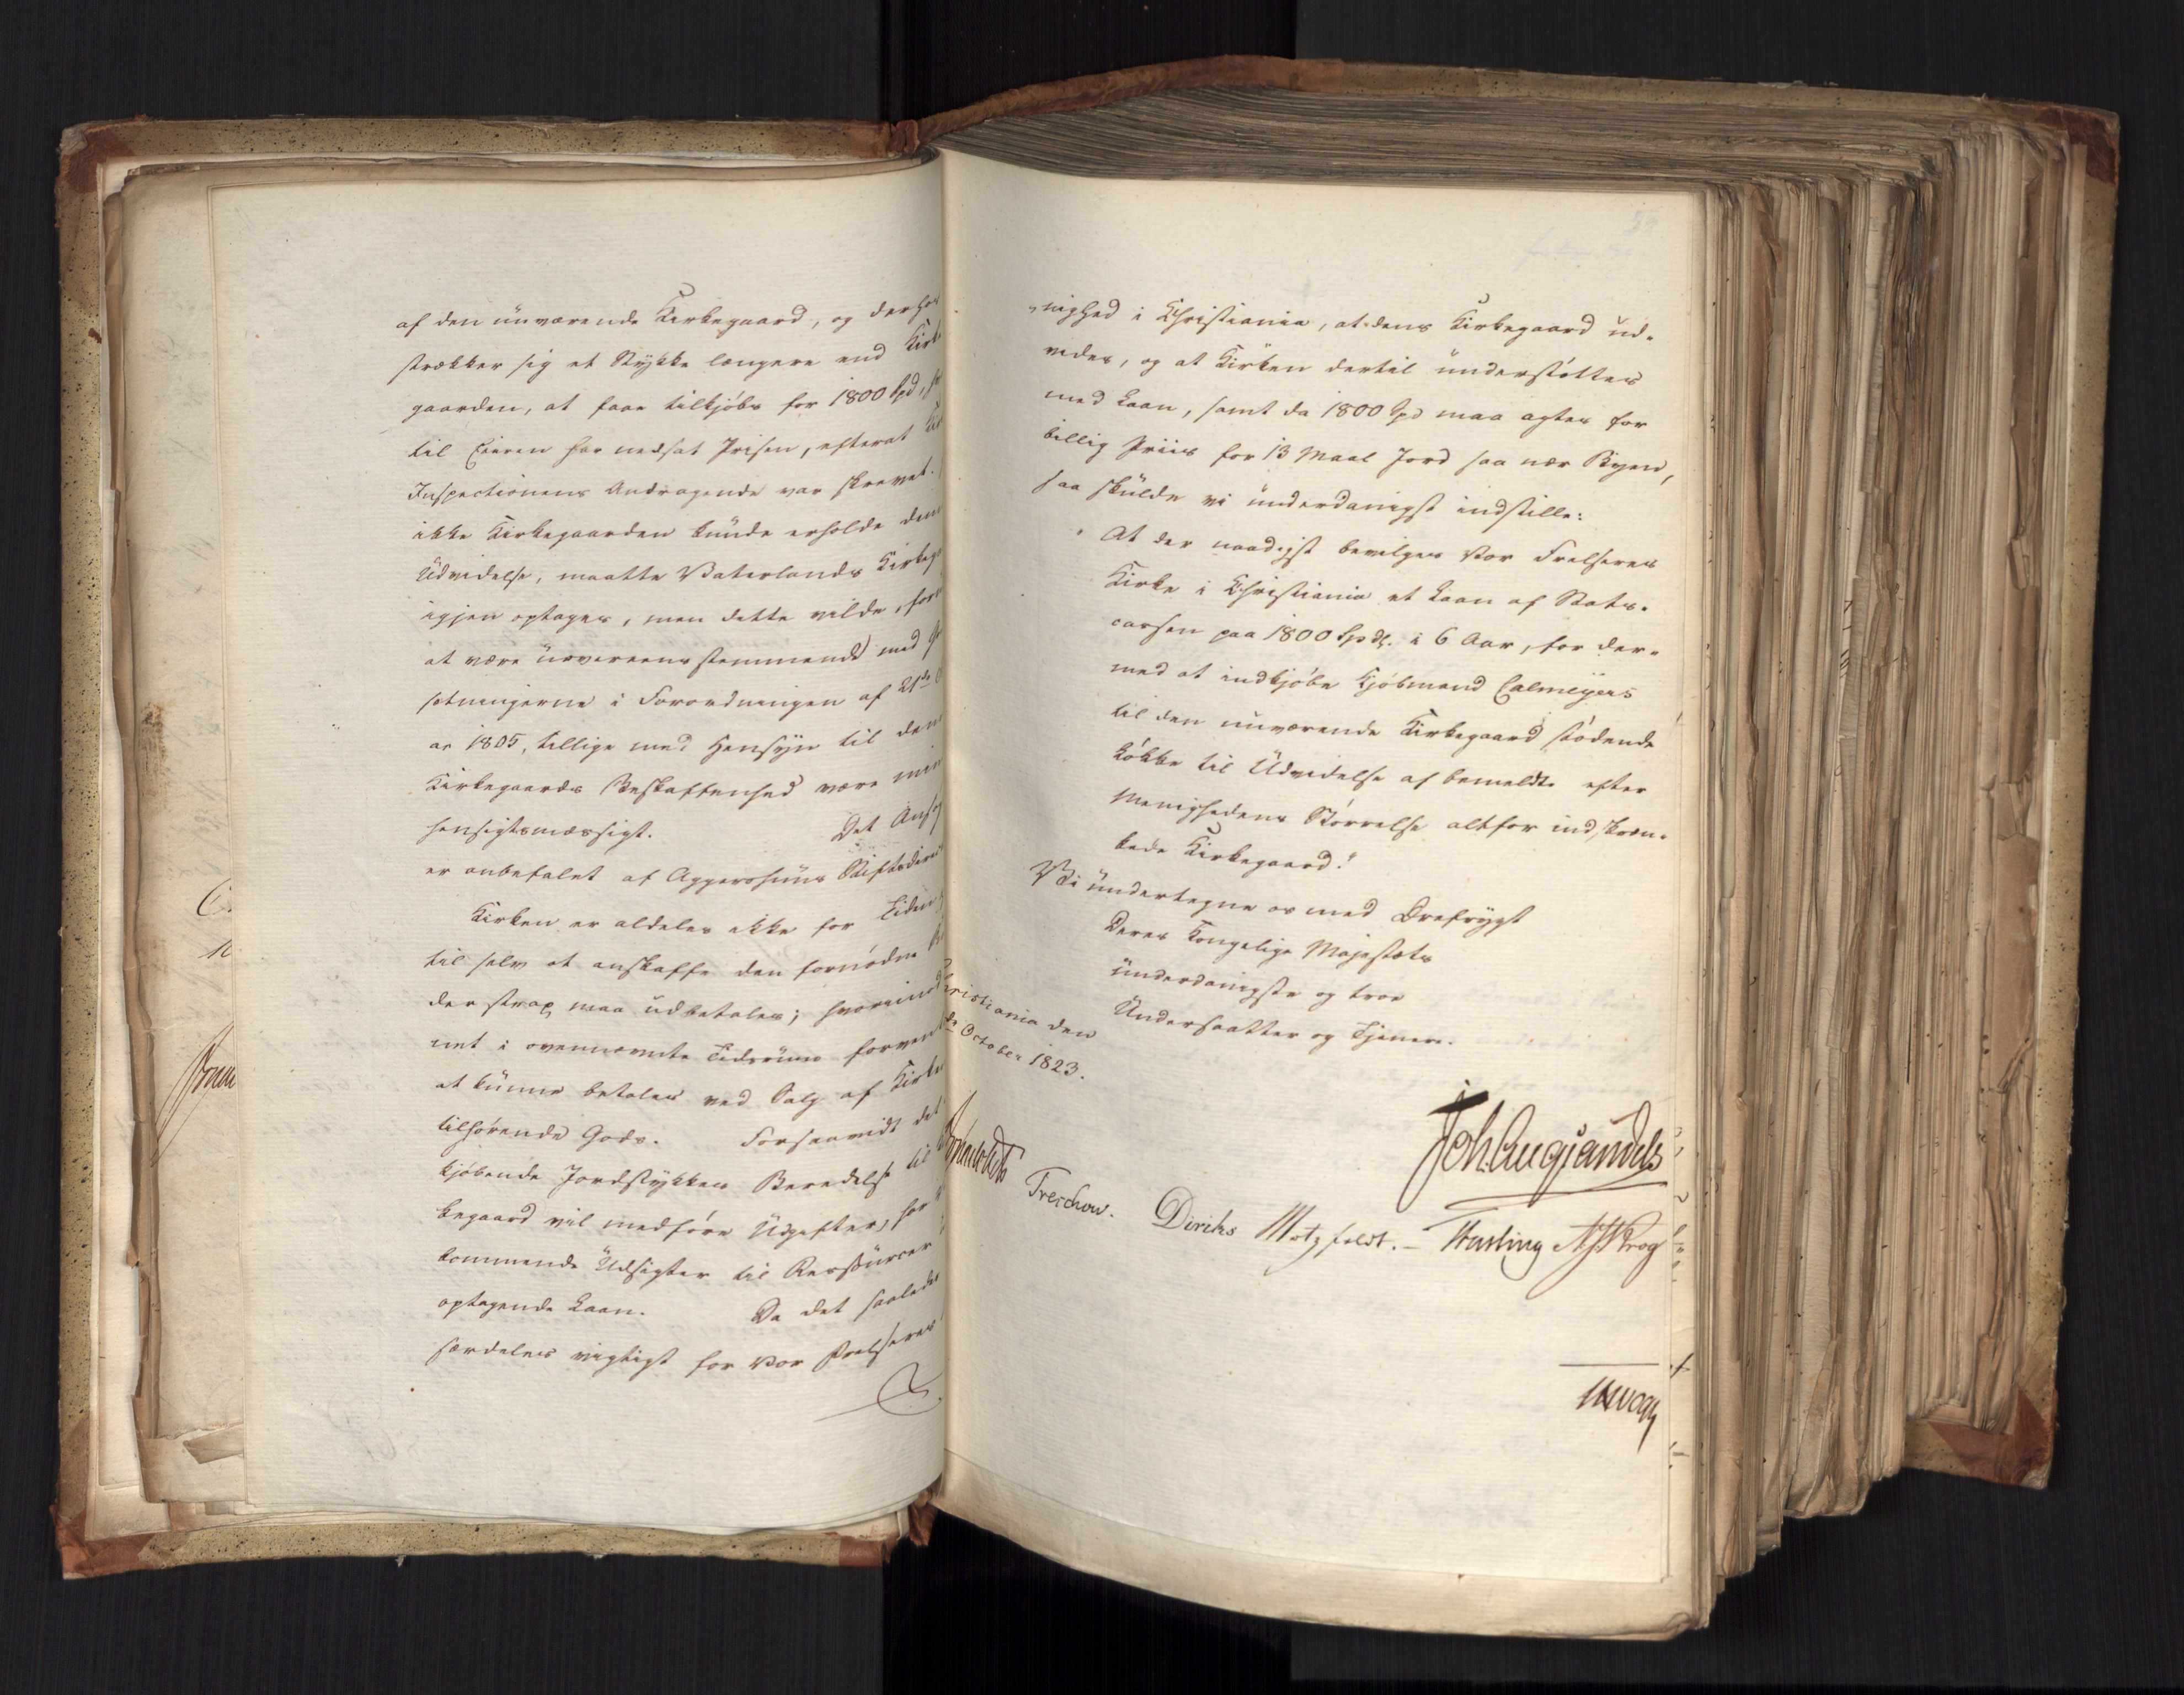 af den nuværende Kirkegaard, og derhos
strækker sig et Stykke længere end Kirke
gaarden, at faae tilkjøbs for 1800 Spd,
til Eieren har nedsat Prisen, efterat
Inspectionens Andragende var skrevet.
ikke Kirkegaarden kunde erholde denne
Udvidelse, maatte Vaterlands Kirkeg
igjen optages, men dette vilde, for
at være uoverensstemmende med
sætningerne i Forordningen af 21de
ar 1805, tillige med Hensyn til den
Kirkegaards Beskaffenhed være min
hensigtsmæssigt. Det Ansøg
er anbefalet af Aggershuus Stiftsdirec
Kirken er aldeles ikke for Tiden
til selv at anskaffe den fornødne
der strax maa udbetales; hvorimod
net i ovennævnte Tidsrum forven
at kunne betales ved Salg af Kirke
tilhørende Gods. Forsaavidt det
kjøbende Jordstykkes Beredelse til
kegaard vil medføre Udgifter, for
kommende Udsigter til Ressourcer
optagende Laan. Da det saaledes
særdeles vigtigt for Vor Frelseres
nighed i Christiania, at dens Kirkegaard ud-
vides, og at Kirken dertil understøttes
med Laan, samt da 1800 Spd maa agtes for
billig Priis for 13 Maal Jord saa nær Byen,
saa skulde vi underdanigst indstille:
" At der naadigst bevilges Vor Frelseres
Kirke i Christiania et Laan af Stats-
cassen paa 1800 Spdr. i 6 Aar, for der-
med at indkjøbe Kjøbmand Calmeyers
til den nuværende Kirkegaard stødende
Løkke til Udvidelse af bemeldte efter
Menighedens Størrelse altfor indskræn-
kede Kirkegaard."
Vi undertegne os med Ærefrygt
Deres Kongelige Majestæts
underdanigste og troe
Undersaatter og Tjenere.
Christiania den
de October 1823.
Joh. Aug. Sandels
Treschow. Diriks Motzfeldt. — Fasting